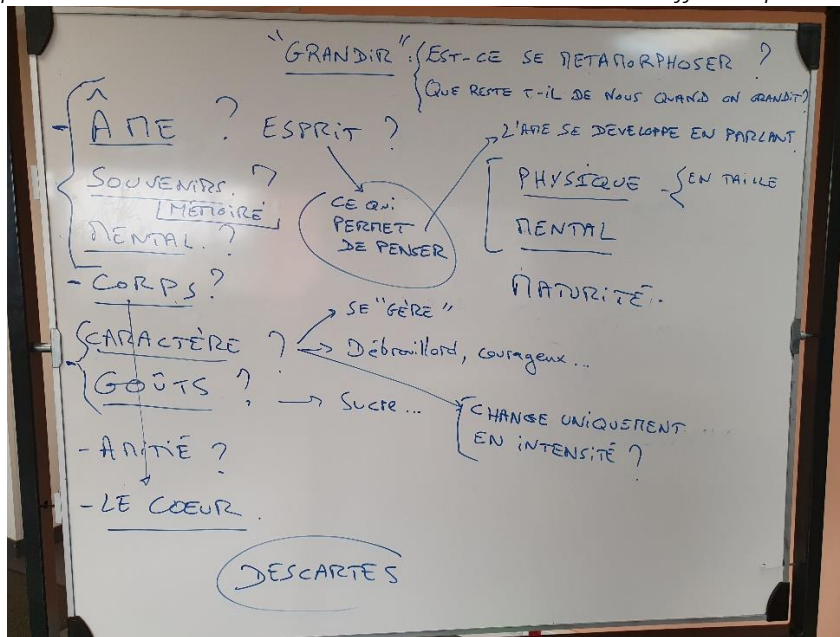 "GRANDIR" : EST-CE SE METAMORPHOSER ?
QUE RESTE T-IL DE NOUS QUAND ON GRANDIT ?
- ÂME ? ESPRIT ?
L'AME SE DEVELOPPE EN PARLANT
SOUVENIRS. ?
MÉMOIRE
MENTAL. ?
CE QUI
PERMET
DE PENSER
PHYSIQUE - EN TAILLE
MENTAL
MATURITÉ.
- CORPS ?
- CARACTÈRE ?
GOÛTS ?
SE "GÈRE"
Débrouillard, courageux...
Sucre ...
CHANGE UNIQUEMENT ...
EN INTENSITÉ ?
- AMITIÉ ?
- LE COEUR.
DESCARTES